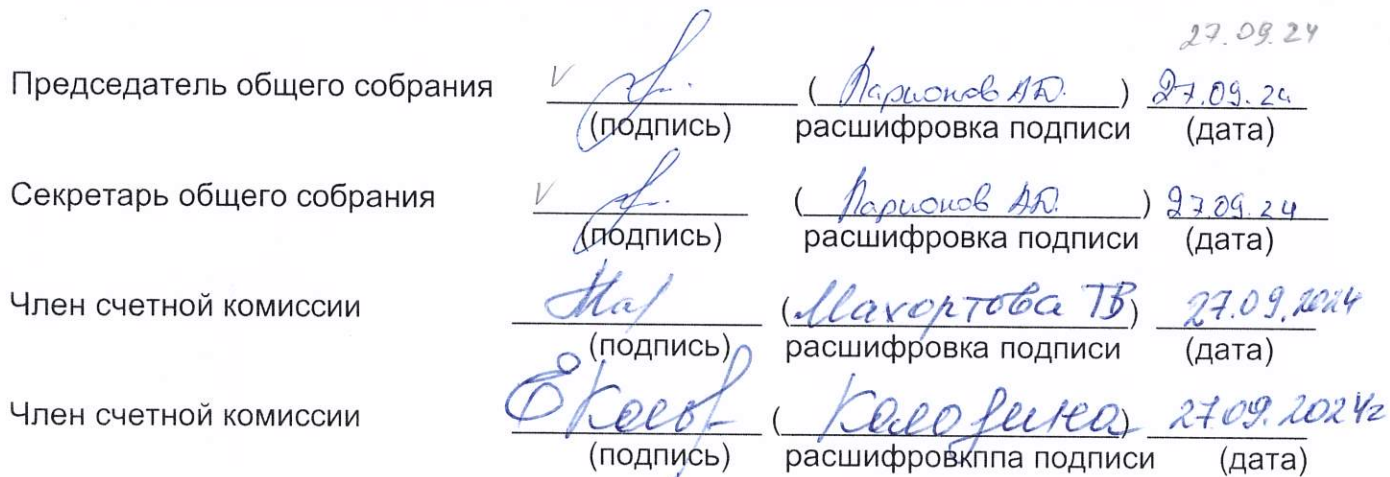 27.09.24
Председатель общего собрания V (Ларионов А.Ю.) 27.09.24
(подпись) расшифровка подписи (дата)
Секретарь общего собрания V (Ларионов А.Ю.) 27.09.24
(подпись) расшифровка подписи (дата)
Член счетной комиссии (Махортова ТВ) 27.09.2024
(подпись) расшифровка подписи (дата)
Член счетной комиссии () 27.09.2024г
(подпись) расшифровкппа подписи (дата)